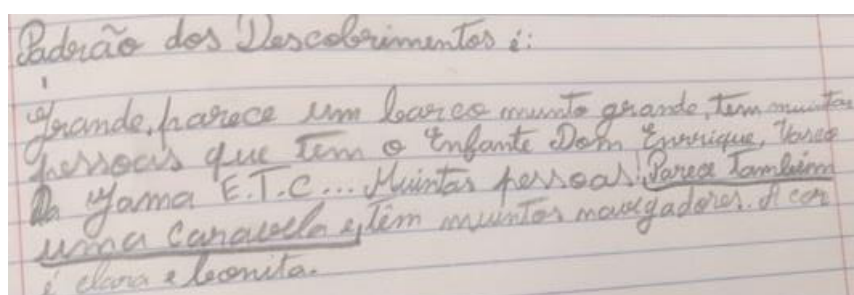 Padrão dos Descobrimentos é:
Grande, parece um barco munto grande, tem muintas
pessoas que tem o Enfante Dom Enrrique, Vasco
Da Gama E.T.C... Muintas pessoas! Parece também
uma Caravela e, têm muintos navegadores. A cor
é clara e bonita.